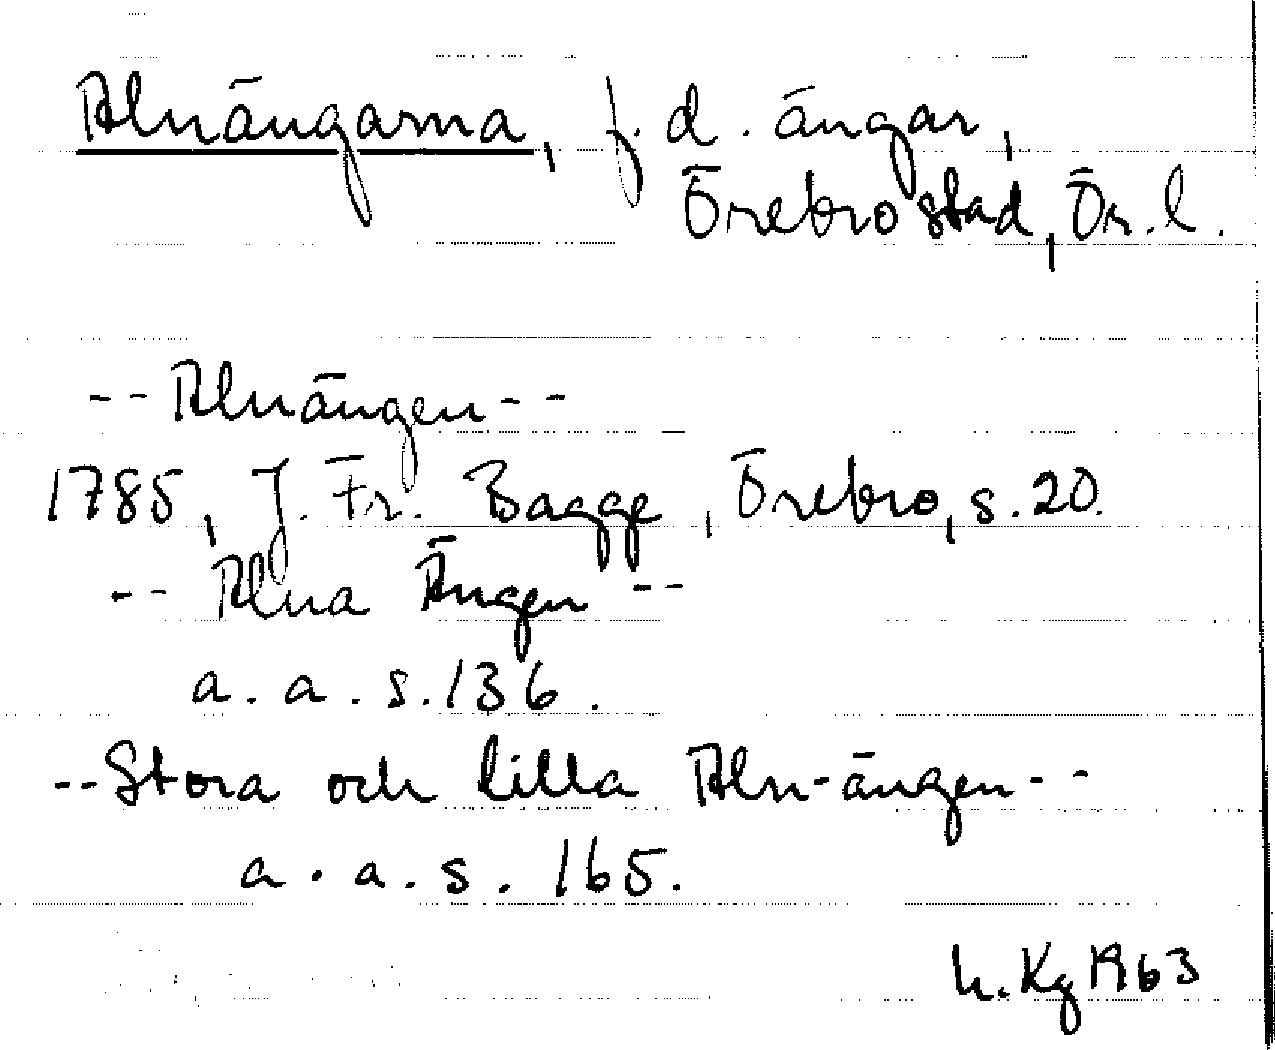 Alnängarna, f.d. ängar,
Örebro stad, Ör.l.
-- Alnängen --
1785, J. Fr. Bagge, Örebro, s. 20.
-- Alna Ängen --
a. a. s. 136.
-- Stora och lilla Aln-ängen --
a. a. s. 165.
h. Kg 1963